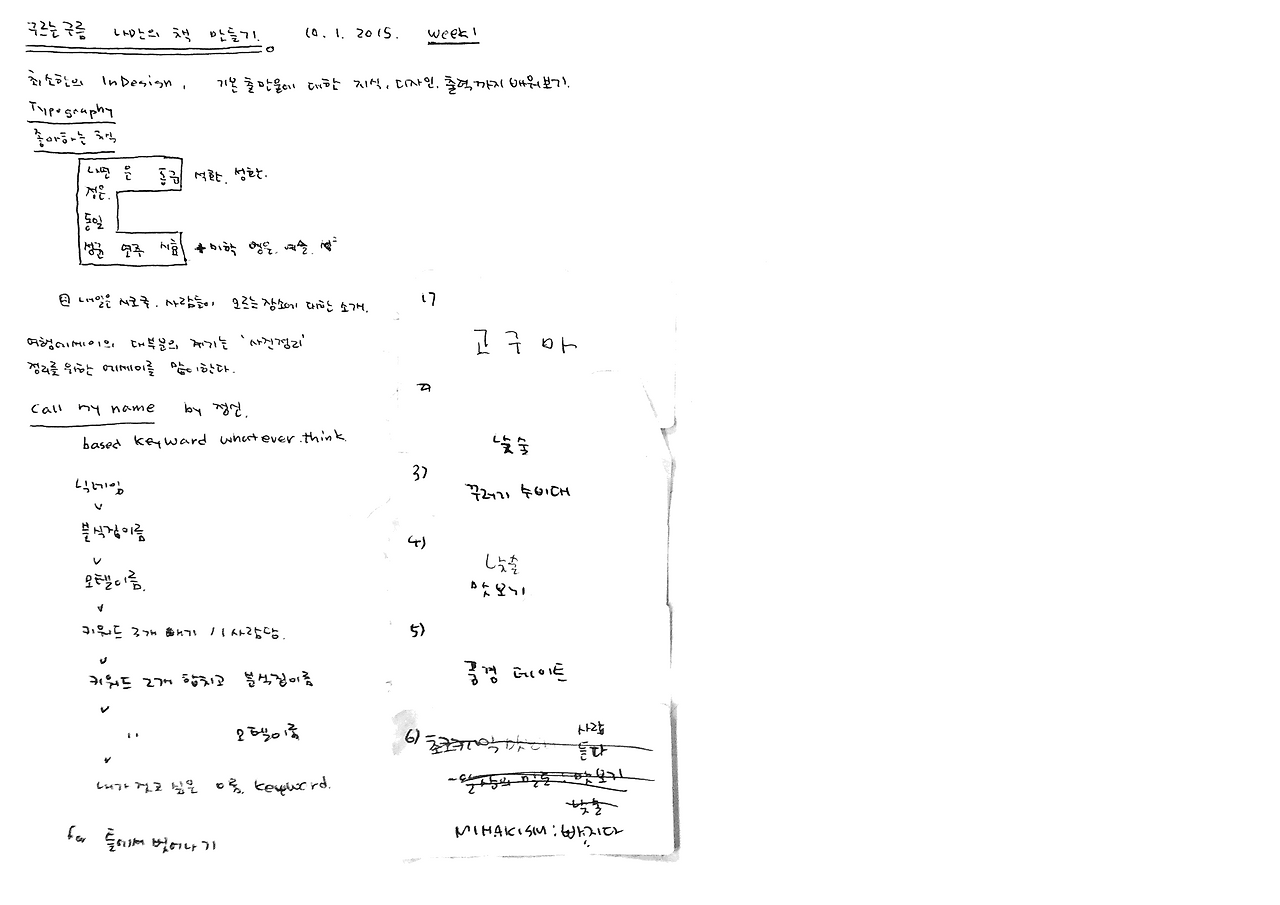 구르는구름 나만의 책 만들기. 10. 1. 2015. week1
최소한의 InDesign, 기본 출판물에 대한 지식, 디자인, 출력까지 배워보기.
Typography
좋아하는 책식
내면 은 동굴 석환, 성환.
정은.
동일
성균 연주 시효 미학 영은, 예슬,
내일은 시호쿡. 사람들이 모르는 장소에 대한 소개.
여행에세이의 대부분의 계기는 '사진정리'
정리를 위한 에세이를 많이한다.
Call my name by 정인.
based keyward whatever.think.
닉네임
분식점이름
모텔이름.
키워드 3개 빼기 11사람당.
키워드 2개 합치고 분식점이름
" 모텔이름
내가 갖고 싶은 이름, keyword.
for 틀에서 벗어나기
1)
고구마
2)
낮술
3)
꾸러기 수비대
4)
낮술
맛보기
5)
풍경 데이트
6)
사람
들다
맛보기
낮술
MIHAKISM : 빠지다